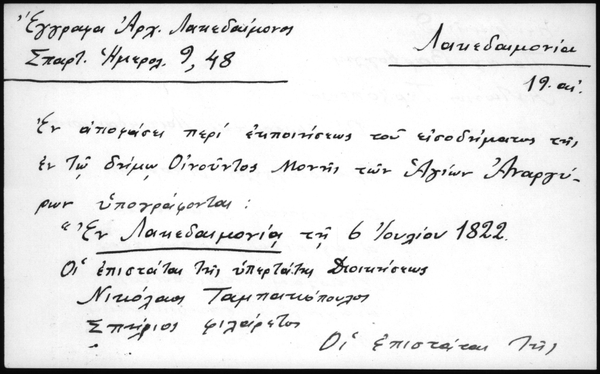 Ἔγγραφα Ἀρχ. Λακεδαίμονος
Σπαρτ. Ἡμερολ. 9, 48
Λακεδαιμονία
19. αἰ.
Ἐν ἀποφάσει περί ἐκποιήσεως τοῦ εἰσοδήματος τῆς
ἐν τῷ δήμῳ Οἰνοῦντος Μονῆς τῶν Ἁγίων Ἀναργύ-
ρων ὑπογράφονται:
"Ἐν Λακεδαιμονίᾳ τῇ 6 Ἰουλίου 1822.
Οἱ ἐπιστάται τῆς ὑπερτάτης Διοικήσεως
Νικόλαος Ταμπακόπουλος
Σπήλιος φιλαίρετος
Οἱ ἐπιστάται τῆς